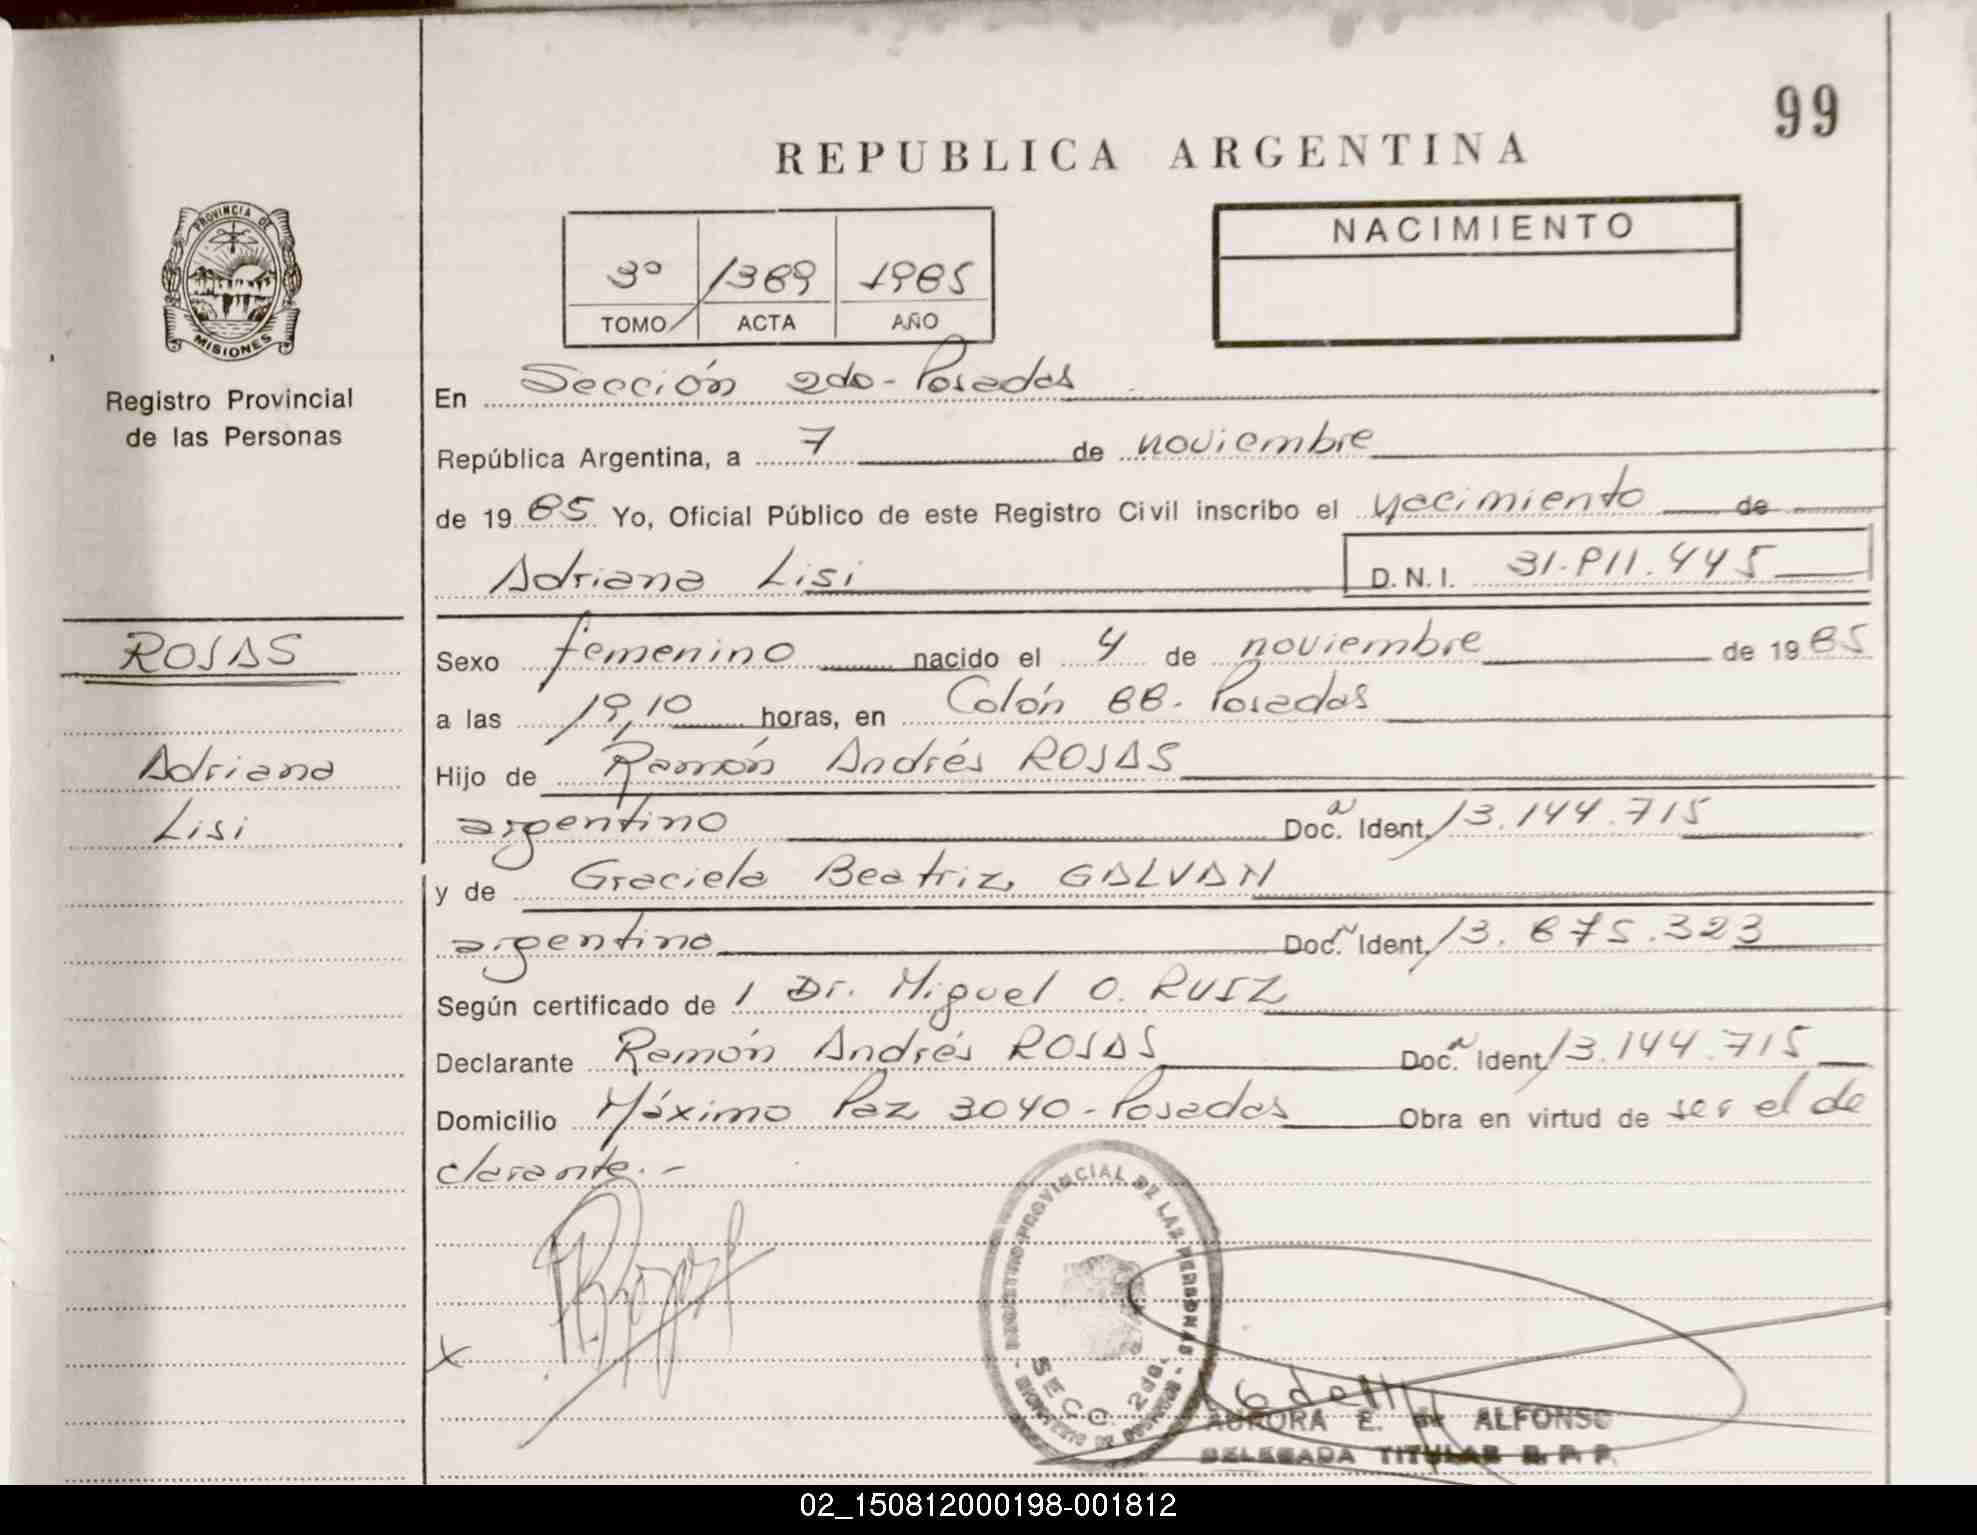 99
REPUBLICA ARGENTINA
NACIMIENTO
3º 1389 1985
TOMO ACTA AÑO
PROVINCIA DE
MISIONES
Registro Provincial
de las Personas
En Sección 2da - Posadas
República Argentina, a 7 de noviembre
de 19 85 Yo, Oficial Público de este Registro Civil inscribo el nacimiento de
Adriana Lisi D.N.I. 31.911.445
ROJAS
Sexo femenino nacido el 4 de noviembre de 19 85
a las 19,10 horas, en Colón 88 - Posadas
Adriana
Hijo de Ramón Andrés ROJAS
Lisi
argentino Doc. Ident. 13.144.715
y de Graciela Beatriz GALVAN
argentina Doc. Ident. 13.875.323
Según certificado de 1 Dr. Miguel O. RUIZ
Declarante Ramón Andrés ROJAS Doc. Ident. 13.144.715
Domicilio Máximo Paz 3040 - Posadas Obra en virtud de ser el de
clarante.-
REGISTRO PROVINCIAL DE LAS PERSONAS
SECC. 2da.
x
AURORA E. de ALFONSO
DELEGADA TITULAR R. P. P.
02_150812000198-001812